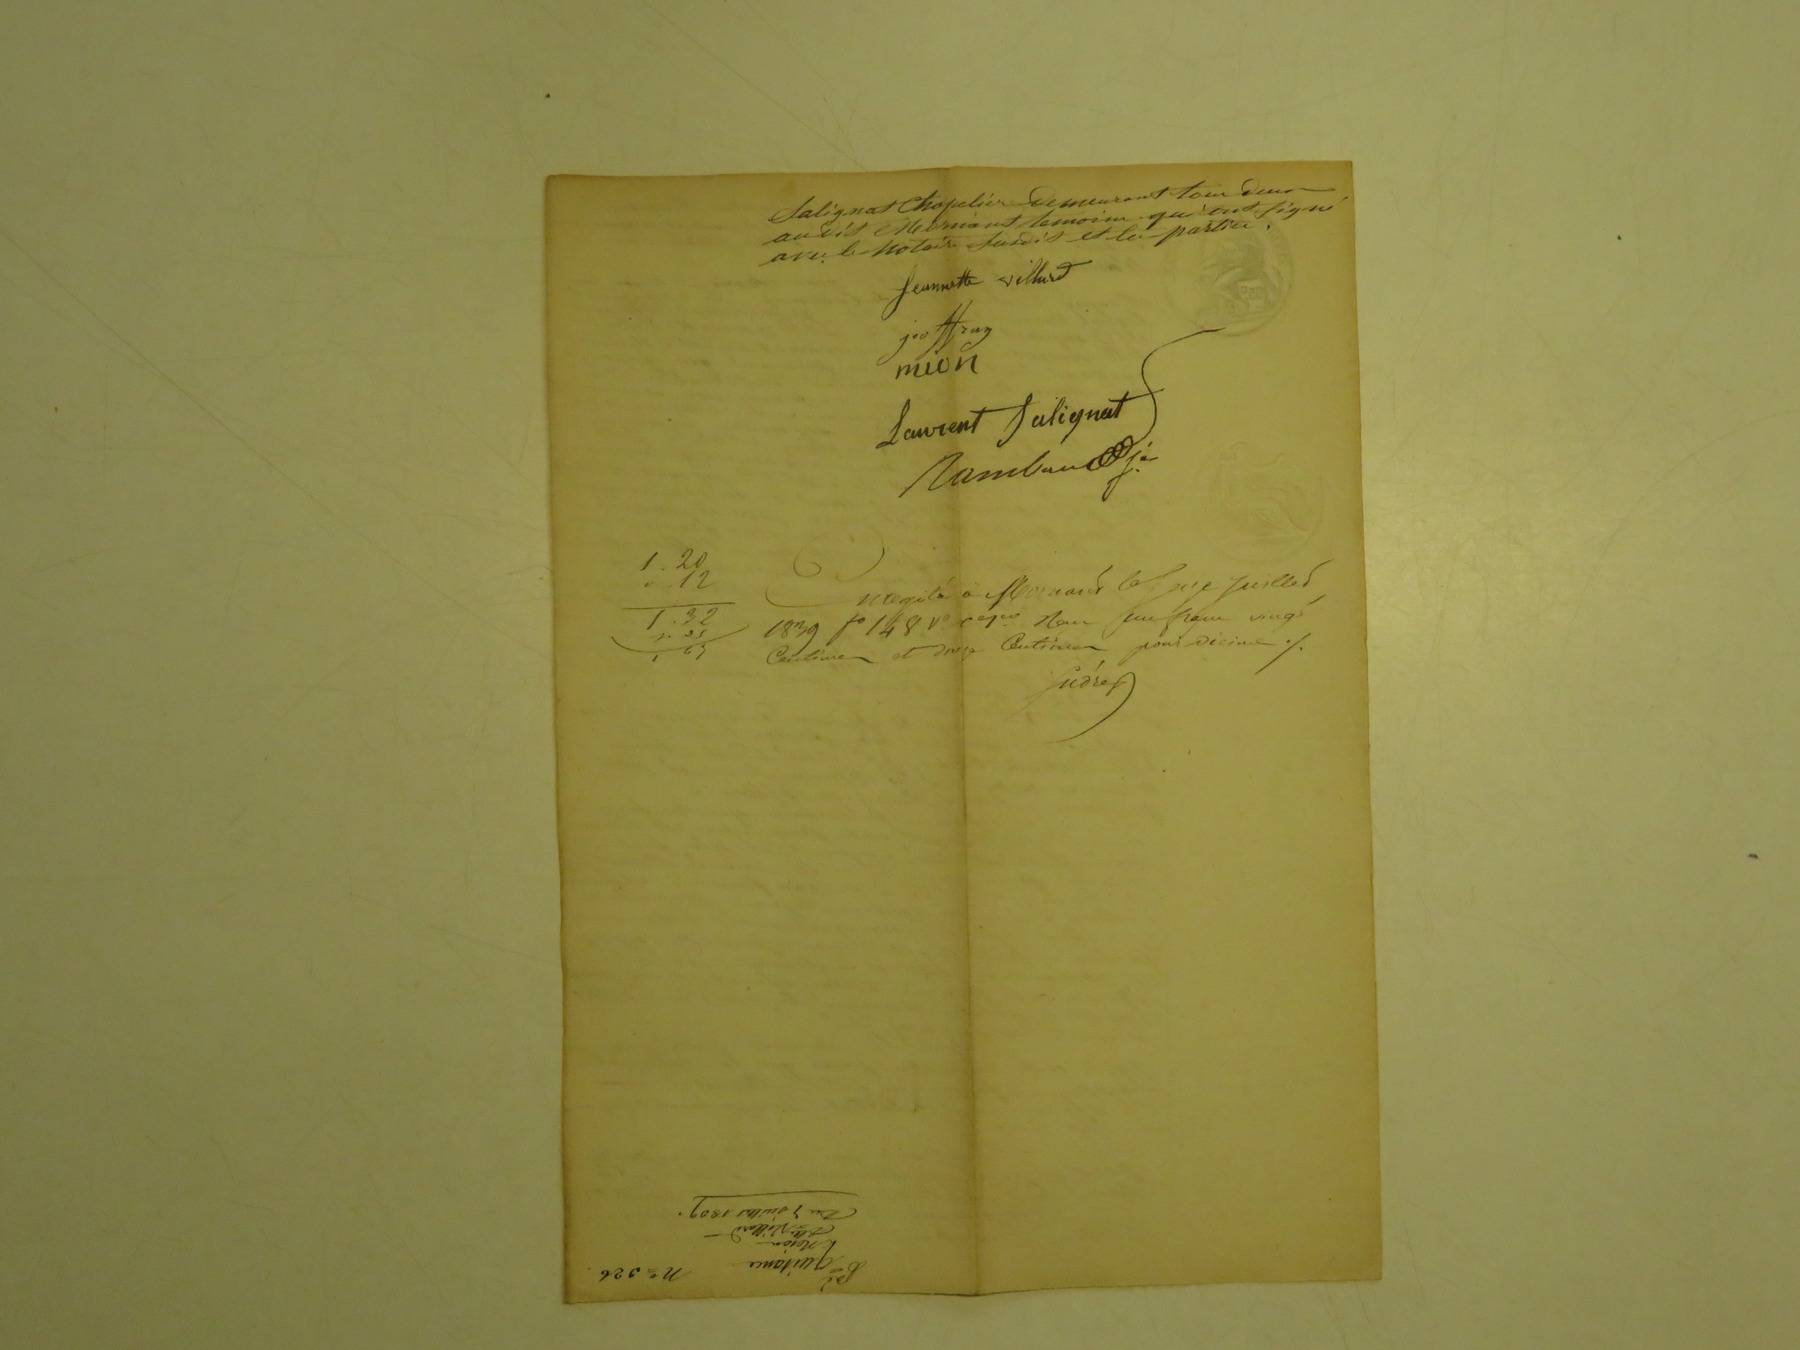 Salignat Chapelier demeurant tous deux
audit Mornant temoins qui ont signé
avec le Notaire susdit et les parties.
Jeannette villard
joffray
mion
Laurent Salignat
Rambaud
1. 20
" 12
1. 32
Enregistré à Mornant le Juillet
1839 fo 148 Vo Reçu un franc vingt
Centimes et douze Centimes pour décime
No 326
Quitance
Villard
Du Juillet